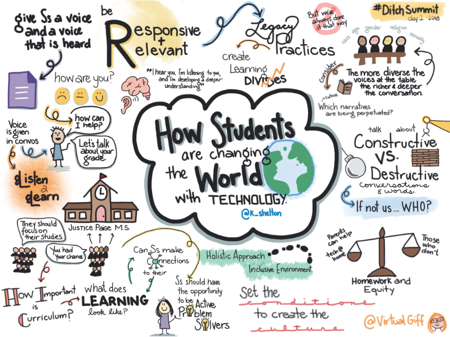 give Ss a voice
and a voice
that is heard
be
Responsive
Relevant
Legacy
Practices
But we've
always done
it that way
#DitchSummit
day 2 2018
race age gender religion
how are you?
"I hear you, I'm listening to you,
and I'm developing a deeper
understanding"
Create
Learning
DIVErSEs
consider
The more diverse the
voices at the table,
the richer & deeper
the conversation
Which narratives
are being perpetuated?
Voice
is given
in convos
how can
I help?
Let's talk
about your
grade.
How Students
are changing
the World
with TECHNOLOGY.
@k_shelton
talk about
Constructive
vs.
Destructive
conversations
& words
If not us... WHO?
Listen
2
Learn
They should
focus on
their studies
You had
your chance!
Justice Paise M.S.
Can Ss make
connections
to their
Holistic Approach
Inclusive Environment
Parents
can help
tech @
home
Those
who
don't
Homework and
Equity
How Important
is
Curriculum?
what does
LEARNING
look like?
Ss should have
the opportunity
to be Active
Problem
Solvers
Set the
conditions
to create the
culture
@VirtualGiff